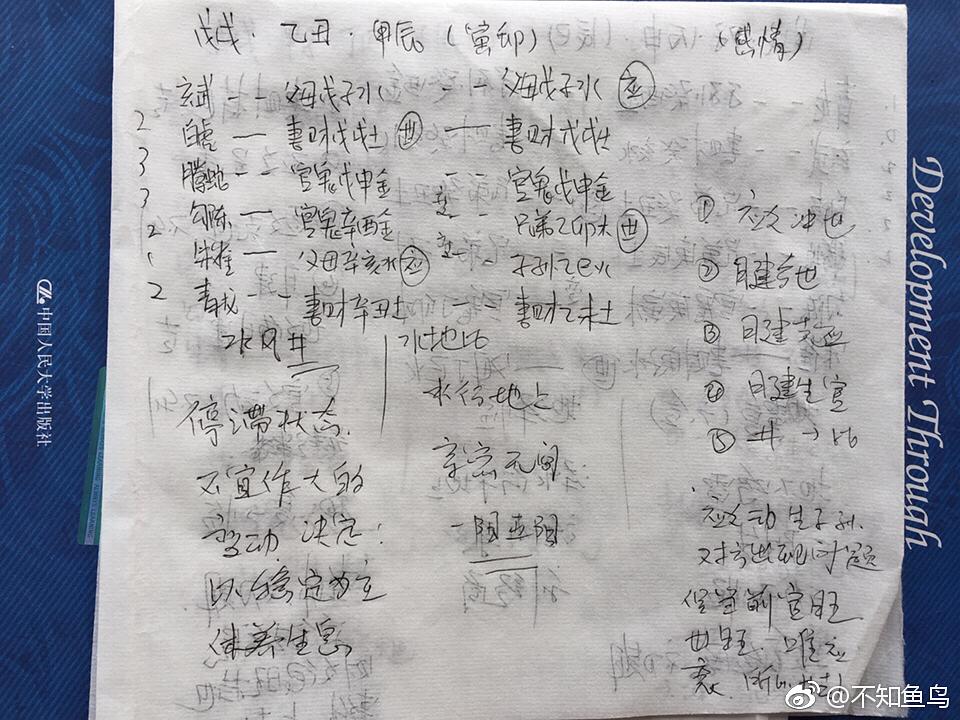 戊戌·乙丑·甲辰（寅卯）（感情）
玄武 -- 父母戊子水 -- 父母戊子水 应
2 白虎 — 妻财戊戌土 世 — 妻财戊戌土
3 腾蛇 -- 官鬼戊申金 -- 官鬼戊申金
3 勾陈 — 官鬼辛酉金 -- 兄弟乙卯木 世
2 朱雀 — 父母辛亥水 应 -- 子孙乙巳火
1
2 青龙 -- 妻财辛丑土 -- 妻财乙未土
水风井
水地比
停滞状态.
不宜作大的
变动 决定:
以稳定为主
休养生息
水行地上
亲密无间
① 应爻冲世
② 日建合世
③ 日建克应
④ 日建生官
⑤ 井→比
应爻动生子孙.
对方出现问题
但当前官旺
世旺. 唯应
衰.
中国人民大学出版社
Development Through
@不知鱼鸟